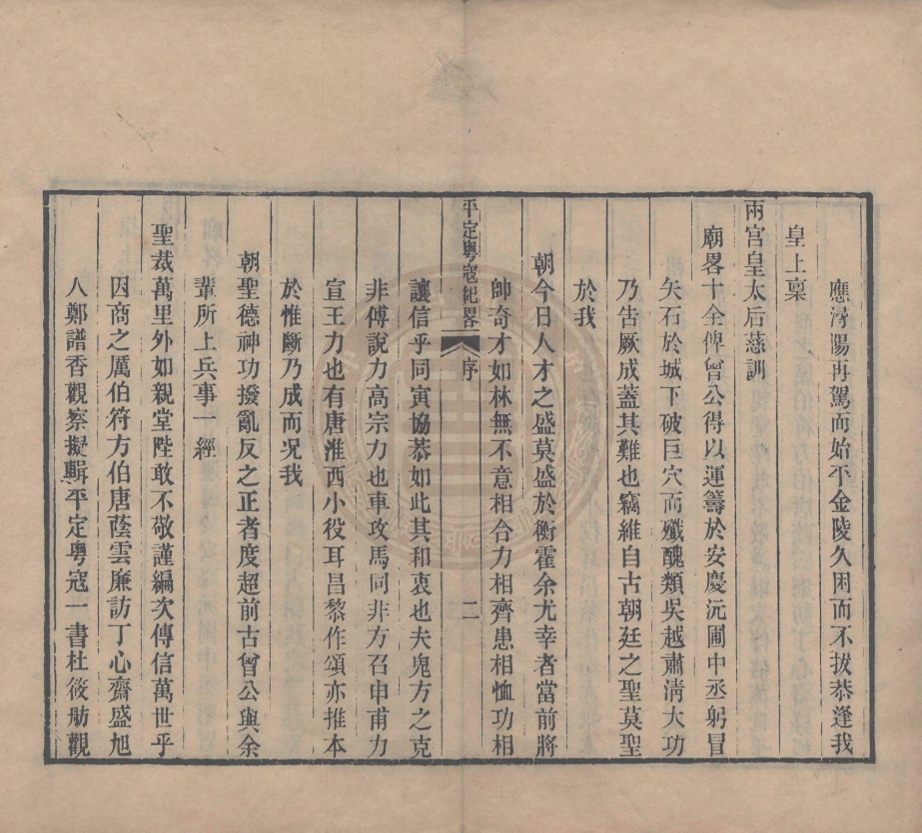 應潯陽再駕而始平金陵久困而不拔恭逢我
皇上稟
兩宮皇太后慈訓
廟畧十全俾曾公得以運籌於安慶沅圃中丞躬冒
矢石於城下破巨穴而殲醜類吳越肅清大功
乃告厥成蓋其難也竊維自古朝廷之聖莫聖
於我
朝今日人才之盛莫盛於衡霍余尤幸者當前將
帥奇才如林無不意相合力相齊患相恤功相
平定粵寇紀畧 序 二
讓信乎同寅協恭如此其和衷也夫鬼方之克
非傅說力高宗力也車攻馬同非方召申甫力
宣王力也有唐淮西小役耳昌黎作頌亦推本
於惟斷乃成而況我
朝聖德神功撥亂反之正者度超前古曾公與余
輩所上兵事一經
聖裁萬里外如親堂陛敢不敬謹編次傳信萬世乎
因商之厲伯符方伯唐蔭雲廉訪丁心齋盛旭
人鄭譜香觀察擬輯平定粵寇一書杜筱舫觀